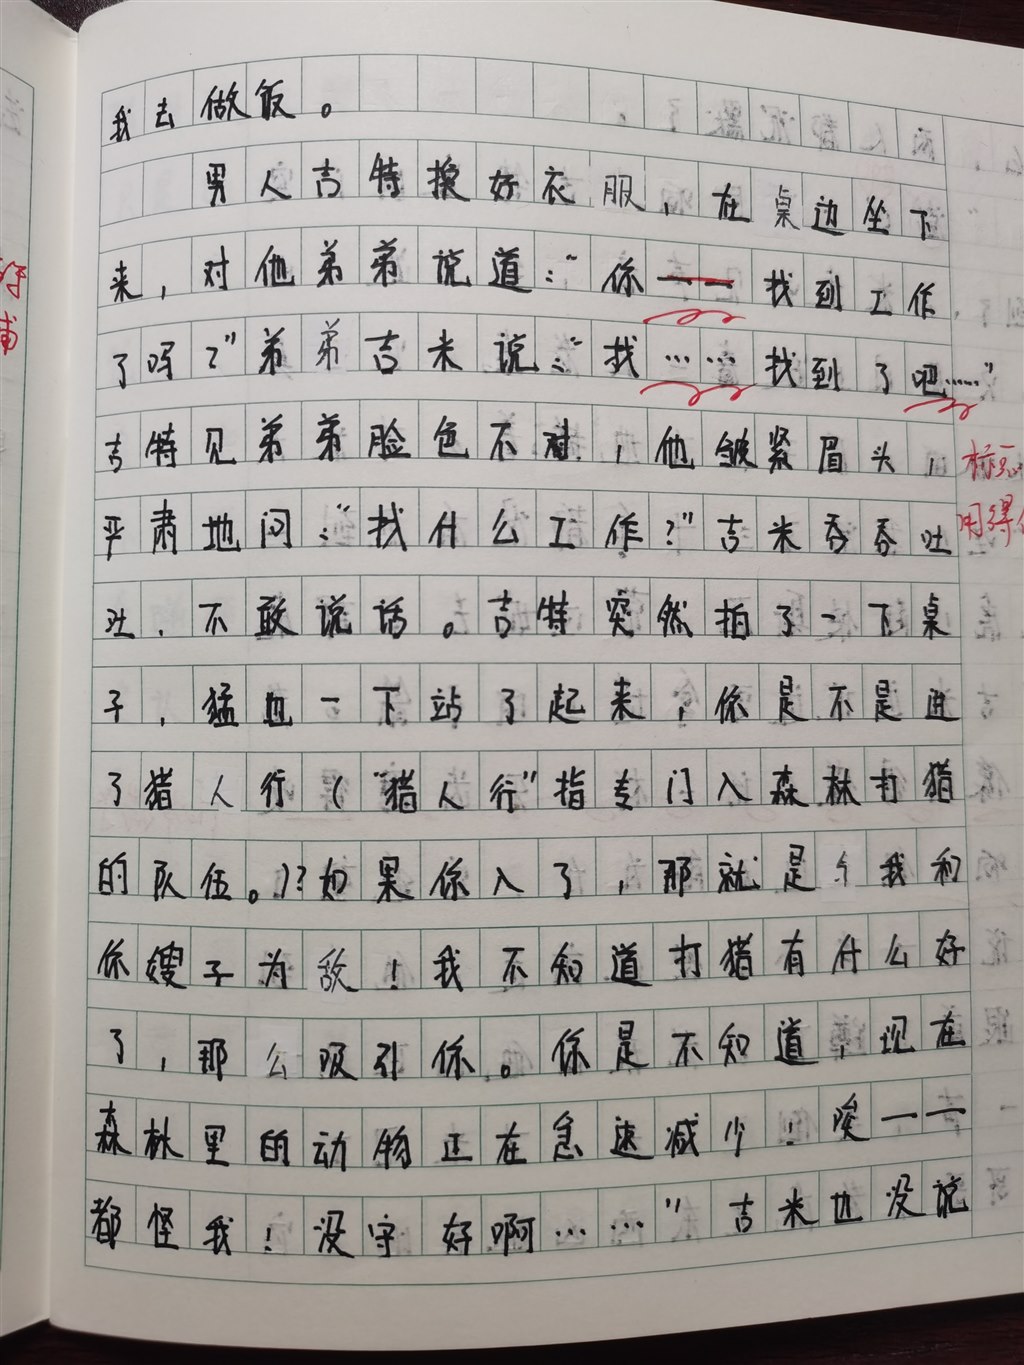 我去做饭。
男人吉特换好衣服，在桌边坐下
来，对他弟弟说道：“你——找到工作
了吗？”弟弟吉米说：“找……找到了吧……”
吉特见弟弟脸色不对，他皱紧眉头，
标点
严肃地问：“找什么工作？”吉米吞吞吐
用得
吐，不敢说话。吉特突然拍了一下桌
子，猛地一下站了起来，你是不是进
了猎人行（“猎人行”指专门入森林打猎
的队伍。）？如果你入了，那就是与我和
你嫂子为敌！我不知道打猎有什么好
了，那么吸引你。你是不知道，现在
森林里的动物正在急速减少！唉——
都怪我！没守好啊……”吉米也没说